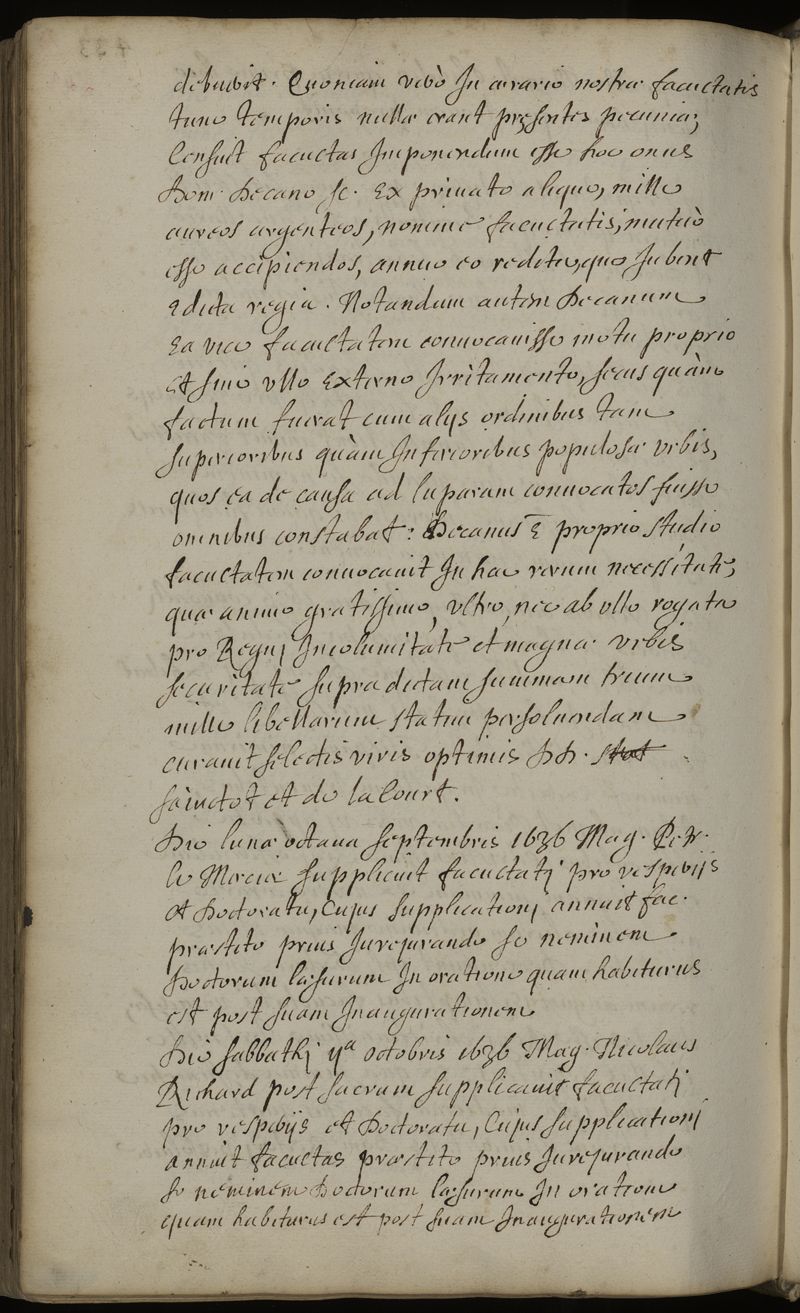 debuerit. Quoniam verò In ærario nostræ facultatis
tunc temporis nullæ erant præsentes pecuniæ,
Censuit facultas Imponendum esse hoc onus
Dom. Decano sc. Ex priuato aliquo, mille
aureos argenteos, nomine facultatis, mutuò
esse accipiendos, annuo eo reditu, quo Jubent
Edicta regia. Notandum autem Decanum
Ea vice facultatem conuocauisse motu proprio
et sine vllo Externo Irritamento, secus quàm
factum fuerat cum alijs ordinibus tam
superioribus quàm Inferioribus populosæ vrbis,
quos ea de causa ad luparam conuocatos fuisse
omnibus constabat: Decanus E proprio studio
facultatem conuocauit In hac rerum necessitate,
quæ animo gratissimo, vltro, nec ab vllo rogata
pro Regni Incolumitate et magnæ vrbis
securitate supradictam summam trium
mille libellarum statim persoluendam
curauit selectis viris optimis DD. stat
sainctot et de la Court.
Die lunæ octaua septembris 1636 Mag. Petr.
le Mercier supplicuit facultati pro vesperijs
et Doctoratu, Cujus supplicationi annuit fac.
præstito prius Jurejurando se neminem
Doctorum læsurum In oratione quam habiturus
est post suam Inaugurationem
Die sabbathi 11a octobris 1636 Mag. Nicolaus
Richard post sacrum supplicauit facultati
pro vesperijs et Doctoratu, Cujus supplicationi
annuit facultas præstito prius Jurejurando
se neminem Doctorum læsurum In oratione
quam habiturus est post suam Inaugurationem